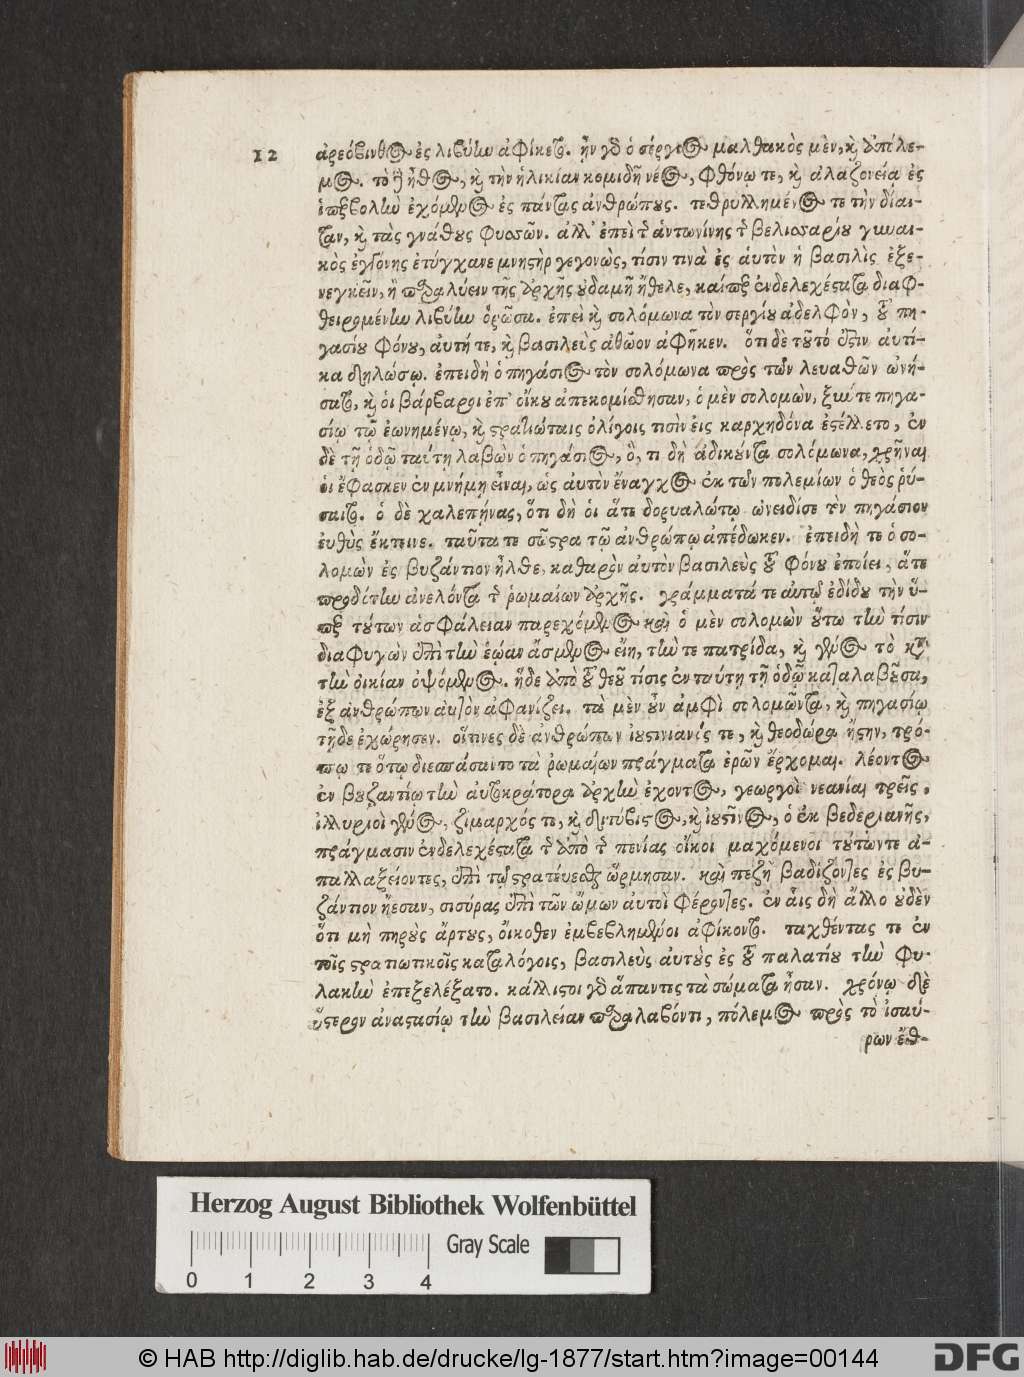 12 ἀρεόβινθος ἐς λιβύην ἀφίκετο. ἦν γὰρ ὁ σέργιος μαλθακὸς μὲν, καὶ ἀπόλε-
μος. τὸ δὲ ἦθος, καὶ τὴν ἡλικίαν κομιδῆ νέος, φθόνῳ τε, καὶ ἀλαζονεία ἐς
ὑπερβολὴν ἐχόμενος ἐς πάντας ἀνθρώπους. τεθρυλλημένος τε τὴν δίαι-
ταν, καὶ τὰς γνάθους φυσῶν. ἀλλ' ἐπεὶ τῆς ἀντωνίνης τῆς βελισαρίου γυναι-
κὸς ἐγγόνης ἐτύγχανε μνηστὴρ γεγονὼς, τίσιν τινὰ ἐς αὐτὸν ἡ βασιλὶς ἐξε-
νεγκεῖν, ἢ παραλύειν τῆς ἀρχῆς οὐδαμῆ ἤθελε, καίπερ ἐνδελεχέστατα διαφ-
θειρομένην λιβύην ὁρῶσα. ἐπεὶ καὶ σολόμωνα τὸν σεργίου ἀδελφὸν, τοῦ πη-
γασίου φόνου, αὐτή τε, καὶ βασιλεὺς ἀθῶον ἀφῆκεν. ὅτι δὲ τοῦτό ἐστιν αὐτί-
κα δηλώσω. ἐπειδὴ ὁ πηγάσιος τὸν σολόμωνα πρὸς τῶν λευαθῶν ὠνή-
σατο, καὶ οἱ βάρβαροι ἐπ' οἴκου ἀπεκομίσθησαν, ὁ μὲν σολομὼν, ξύν τε πηγα-
σίῳ τῷ ἐωνημένῳ, καὶ στρατιώταις ὀλίγοις τισὶν εἰς καρχηδόνα ἐστέλλετο, ἐν
δὲ τῇ ὁδῷ ταύτῃ λαβὼν ὁ πηγάσιος, ὅ, τι δὴ ἀδικοῦντα σολόμωνα, χρῆναι
οἱ ἔφασκεν ἐν μνήμῃ εἶναι, ὡς αὐτὸν ἔναγχος ἐκ τῶν πολεμίων ὁ θεὸς ῥύ-
σαιτο. ὁ δὲ χαλεπήνας, ὅτι δὴ οἱ ἅτε δορυαλώτῳ ὠνείδισε τὸν πηγάσιον
εὐθὺς ἔκτεινε. ταῦτα τε σῶστρα τῷ ἀνθρώπῳ ἀπέδωκεν. ἐπειδὴ τε ὁ σο-
λομὼν ἐς βυζάντιον ἦλθε, καθαρὸν αὐτὸν βασιλεὺς τοῦ φόνου ἐποίει, ἅτε
προδότην ἀνελόντα τῆς ῥωμαίων ἀρχῆς. γράμματά τε αὐτῷ ἐδίδου τὴν ὑ-
πὲρ τούτων ἀσφάλειαν παρεχόμενος καὶ ὁ μὲν σολομὼν οὕτω τὴν τίσιν
διαφυγὼν ἐπὶ τὴν ἑῴαν ἄσμενος εἴη, τήν τε πατρίδα, καὶ γένος τὸ κατὰ
τὴν οἰκίαν ὀψόμενος. ἥδε ἀπὸ τοῦ θεοῦ τίσις ἐν ταύτῃ τῇ ὁδῷ καταλαβοῦσα,
ἐξ ἀνθρώπων αὐτὸν ἀφανίζει. τὰ μὲν οὖν ἀμφὶ σολομῶντα, καὶ πηγασίῳ
τῇδε ἐχώρησεν. οἵτινες δὲ ἀνθρώπων ἰουστινιανός τε, καὶ θεοδώρα ἤστην, τρό-
πῳ τε ὅτῳ διεσπάσαντο τὰ ῥωμαίων πράγματα ἐρῶν ἔρχομαι. λέοντος
ἐν βυζαντίῳ τὴν αὐτοκράτορα ἀρχὴν ἔχοντος, γεωργοὶ νεανίαι τρεῖς,
ἰλλυριοὶ γένος, ζίμαρχός τι, καὶ διτύβιστος, καὶ ἰουστῖνος, ὁ ἐκ βεδεριανῆς,
πράγμασιν ἐνδελεχέστατα τοῖς ἀπὸ τῆς πενίας οἴκοι μαχόμενοι τούτωντε ἀ-
παλλαξείοντες, ἐπὶ τῷ στρατεύεσθαι ὥρμησαν. καὶ πεζῇ βαδίζοντες ἐς βυ-
ζάντιον ᾔεσαν, σισύρας ἐπὶ τῶν ὤμων αὐτοὶ φέροντες. ἐν αἷς δὴ ἄλλο οὐδὲν
ὅτι μὴ πηροὺς ἄρτους, οἴκοθεν ἐμβεβλημένοι ἀφίκοντο. ταχθέντας τε ἐν
τοῖς στρατιωτικοῖς καταλόγοις, βασιλεὺς αὐτοὺς ἐς τοῦ παλατίου τὴν φυ-
λακὴν ἐπεξελέξατο. κάλλιστοι γὰρ ἅπαντες τὰ σώματα ἦσαν. χρόνῳ δὲ
ὕστερον ἀναστασίῳ τὴν βασιλείαν παραλαβόντι, πόλεμος πρὸς τὸ ἰσαύ-
ρων ἔθ-
Herzog August Bibliothek Wolfenbüttel
Gray Scale
0 1 2 3 4
© HAB http://diglib.hab.de/drucke/lg-1877/start.htm?image=00144
DFG